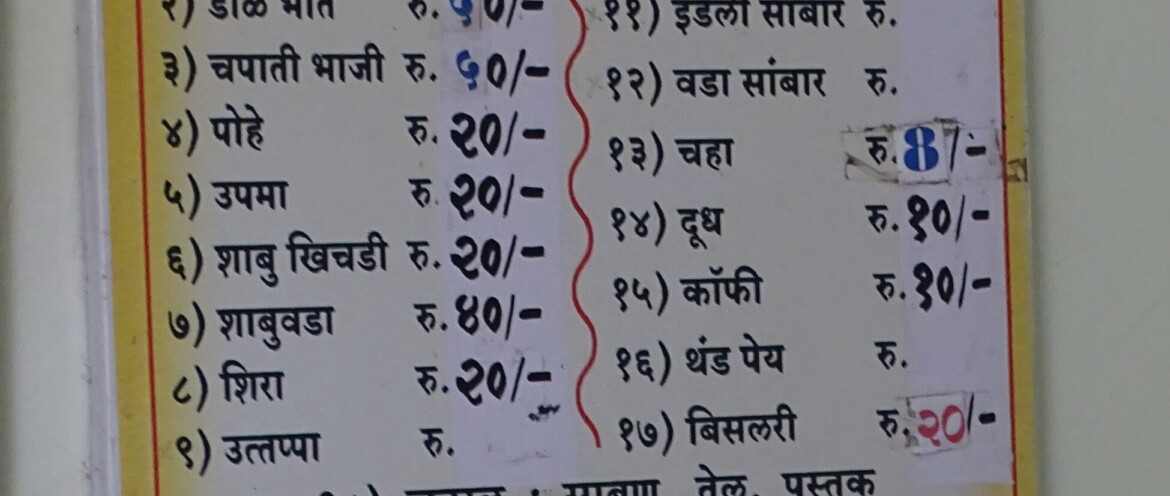 २) डाळ भात रु. ५०/-
३) चपाती भाजी रु. ५०/-
४) पोहे रु. २०/-
५) उपमा रु. २०/-
६) शाबु खिचडी रु. २०/-
७) शाबुवडा रु. ४०/-
८) शिरा रु. २०/-
९) उत्तप्पा रु.
११) इडली सांबार रु.
१२) वडा सांबार रु.
१३) चहा रु. 8/-
१४) दूध रु. १०/-
१५) कॉफी रु. १०/-
१६) थंड पेय रु.
१७) बिसलरी रु. २०/-
तेल, पुस्तक